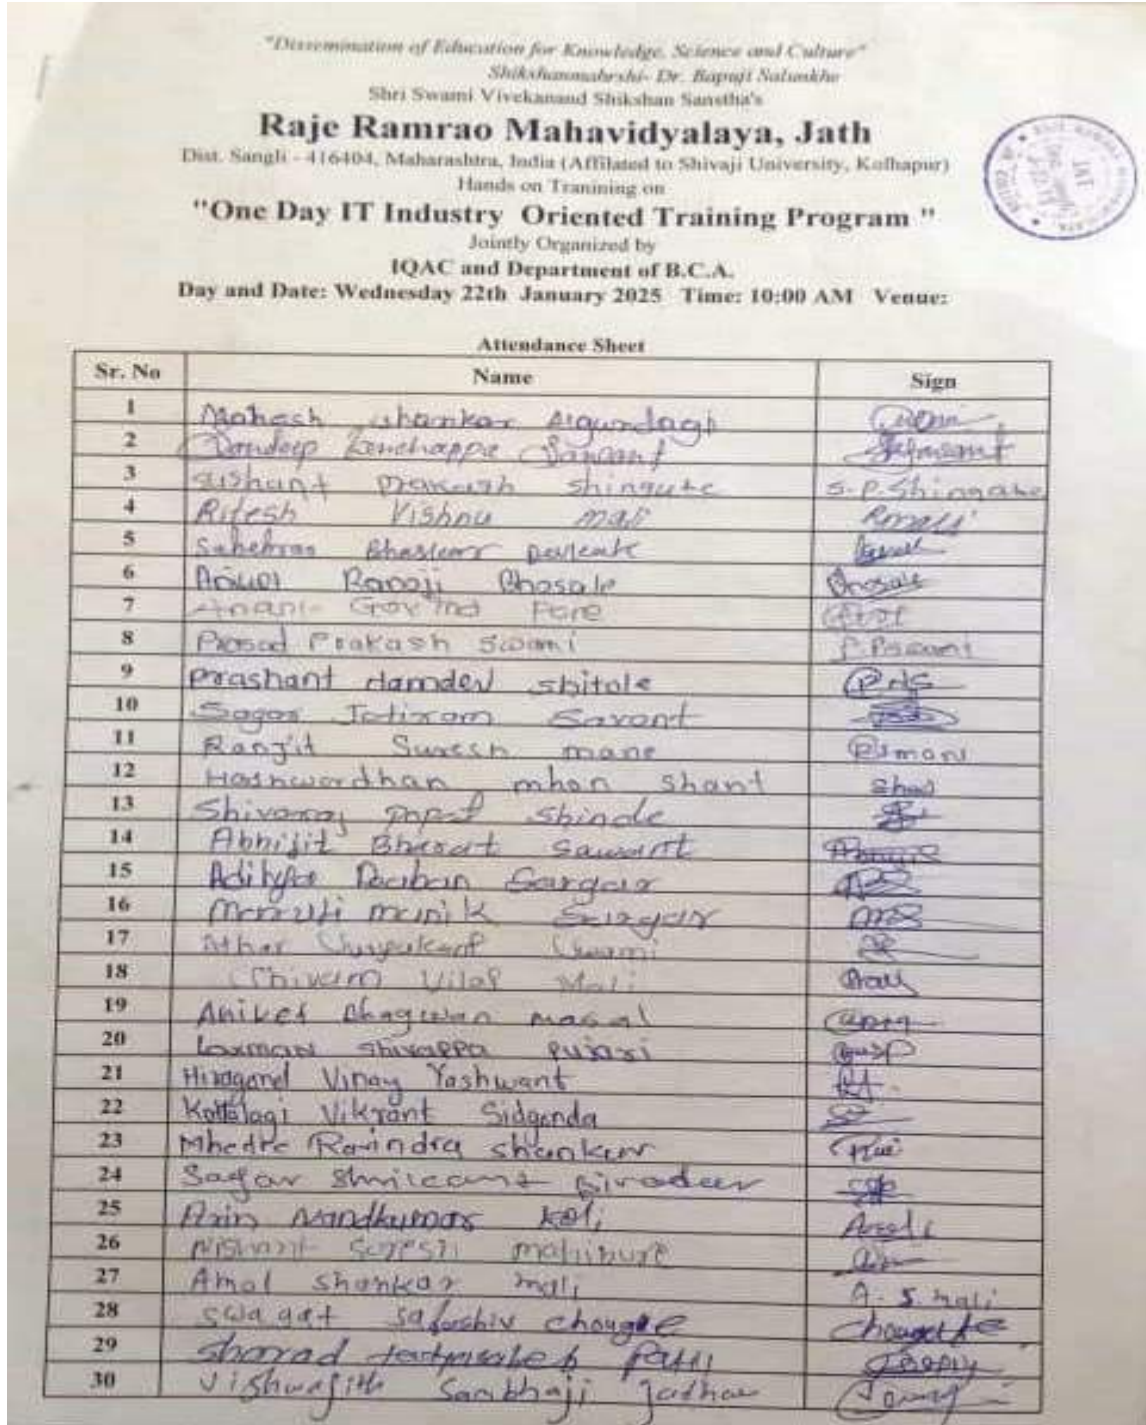 "Dissemination of Education for Knowledge, Science and Culture"
Shikshanmahrshi- Dr. Bapuji Salunkhe
Shri Swami Vivekanand Shikshan Sanstha's
Raje Ramrao Mahavidyalaya, Jath
Dist. Sangli - 416404, Maharashtra, India (Affilated to Shivaji University, Kolhapur)
Hands on Tranining on
"One Day IT Industry Oriented Training Program "
Jointly Organized by
IQAC and Department of B.C.A.
Day and Date: Wednesday 22th January 2025 Time: 10:00 AM Venue:
Attendance Sheet
Sr. No Name Sign
1 Mahesh shankar Aigundagi
2 Sandeep Sawant
3 sushant prakash shingate S.P.Shingate
4 Ritesh Vishnu mali Rmali
5
6 Ranoji Bhosale Bhosale
7 Anant Govind Pore
8 Prasad Prakash Swami P.P.Swami
9 Prashant Hamdev shitole
10 Sagar Jotiram Savant
11 Ranjit Suresh mane
12 Harshwardhan mhon shant
13 Shivaraj popat Shinde
14 Abhijit Bharat Sawant
15 Sargar
16 Maruti manik Sargar
17 Swami
18 Shivam Vilas Mali
19 Aniket Bhagwan masal
20 Laxman shivappa pujari
21 Hiragond Vinay Yashwant
22 Kottalagi Vikrant Sidgonda
23 Mhetre Ravindra shankar
24 Sagar Shrikant Biradar
25 Nandkumar koli
26 Nishant Suresh
27 Amol shankar mali A.S.mali
28 swagat sadashiv chougle
29 Sharad
30 Vishwajith Sambhaji Jadhav